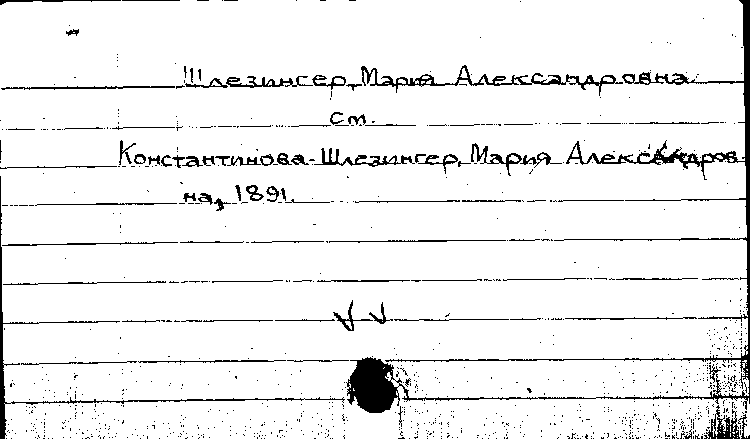 Шлезингер, Мария Александровна
ст.
Константинова-Шлезингер, Мария Александров-
на, 1891.